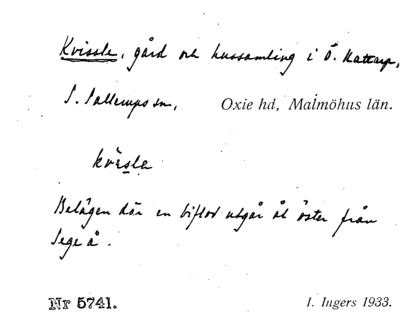 Kvissle, gård och hussamling i Ö. Kattarp,
S. Sallerups sn, Oxie hd, Malmöhus län.
kvisla
Belägen där en biflod utgår åt öster från
Sege å.
Nr 5741. I. Ingers 1933.